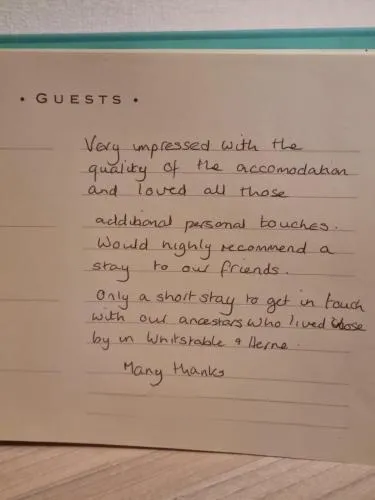 • GUESTS •
Very impressed with the
quality of the accomodation
and loved all those
additional personal touches.
Would highly recommend a
stay to our friends.
Only a short stay to get in touch
with our ancestors who lived close
by in Whitstable & Herne.
Many thanks